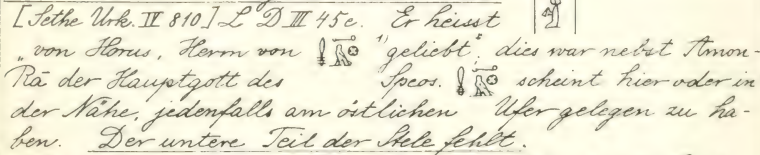 [Sethe Urk. IV 810] L D III 45e. Er heisst
„von Horus, Herrn von "geliebt"; dies war nebst Amon-
Rā der Hauptgott des Speos. scheint hier oder in
der Nähe, jedenfalls am östlichen Ufer gelegen zu ha-
ben. Der untere Teil der Stele fehlt.